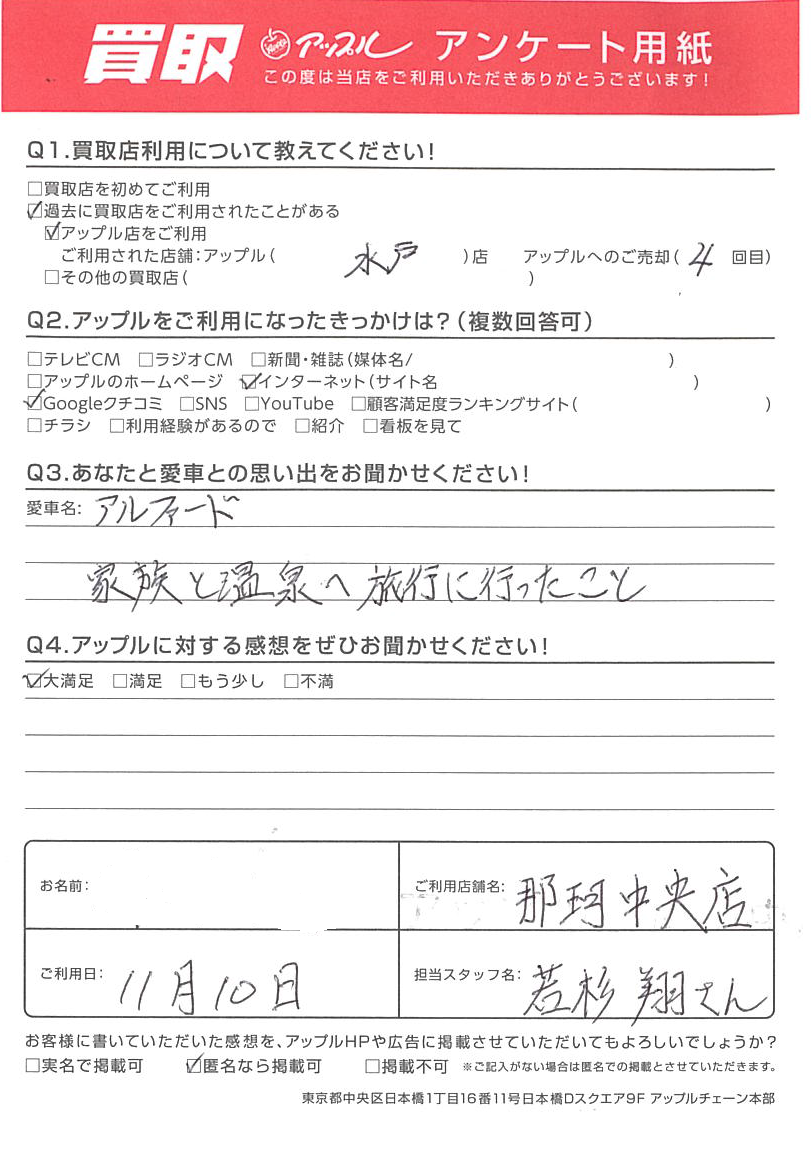 買取 アップル アンケート用紙
この度は当店をご利用いただきありがとうございます!
Q1.買取店利用について教えてください!
□買取店を初めてご利用
☑過去に買取店をご利用されたことがある
☑アップル店をご利用
ご利用された店舗:アップル( 水戸 )店 アップルへのご売却( 4 回目)
□その他の買取店( )
Q2.アップルをご利用になったきっかけは?(複数回答可)
□テレビCM □ラジオCM □新聞・雑誌(媒体名/ )
□アップルのホームページ ☑インターネット(サイト名 )
☑Googleクチコミ □SNS □YouTube □顧客満足度ランキングサイト( )
□チラシ □利用経験があるので □紹介 □看板を見て
Q3.あなたと愛車との思い出をお聞かせください!
愛車名: アルファード
家族と温泉へ旅行に行ったこと
Q4.アップルに対する感想をぜひお聞かせください!
☑大満足 □満足 □もう少し □不満
お名前:
ご利用店舗名: 那珂中央店
ご利用日: 11月10日
担当スタッフ名: 若杉 翔さん
お客様に書いていただいた感想を、アップルHPや広告に掲載させていただいてもよろしいでしょうか?
□実名で掲載可 ☑匿名なら掲載可 □掲載不可 ※ご記入がない場合は匿名での掲載とさせていただきます。
東京都中央区日本橋1丁目16番11号日本橋Dスクエア9F アップルチェーン本部